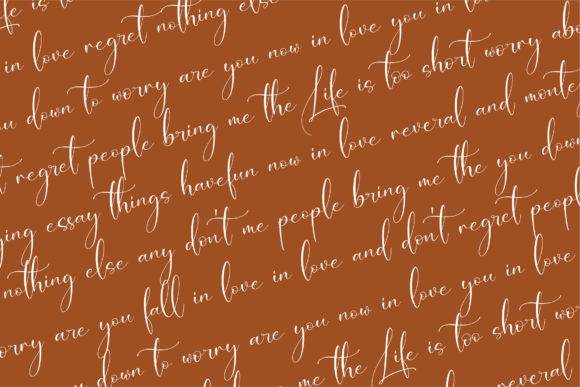 fe is
in love regret nothing else
ou down to worry are you now in love you in
t regret people bring me the Life is too short worry abo
ging essay things havefun now in love reveral and monte
nothing else any don't me people bring me the you down
orry are you fall in love in love and don't regret peopl
u down to worry are you now in love you in love
me the Life is too short wor
in love reveral